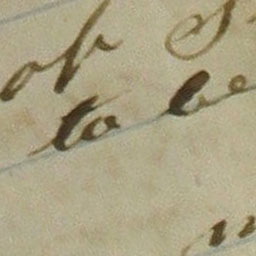 of S
to be